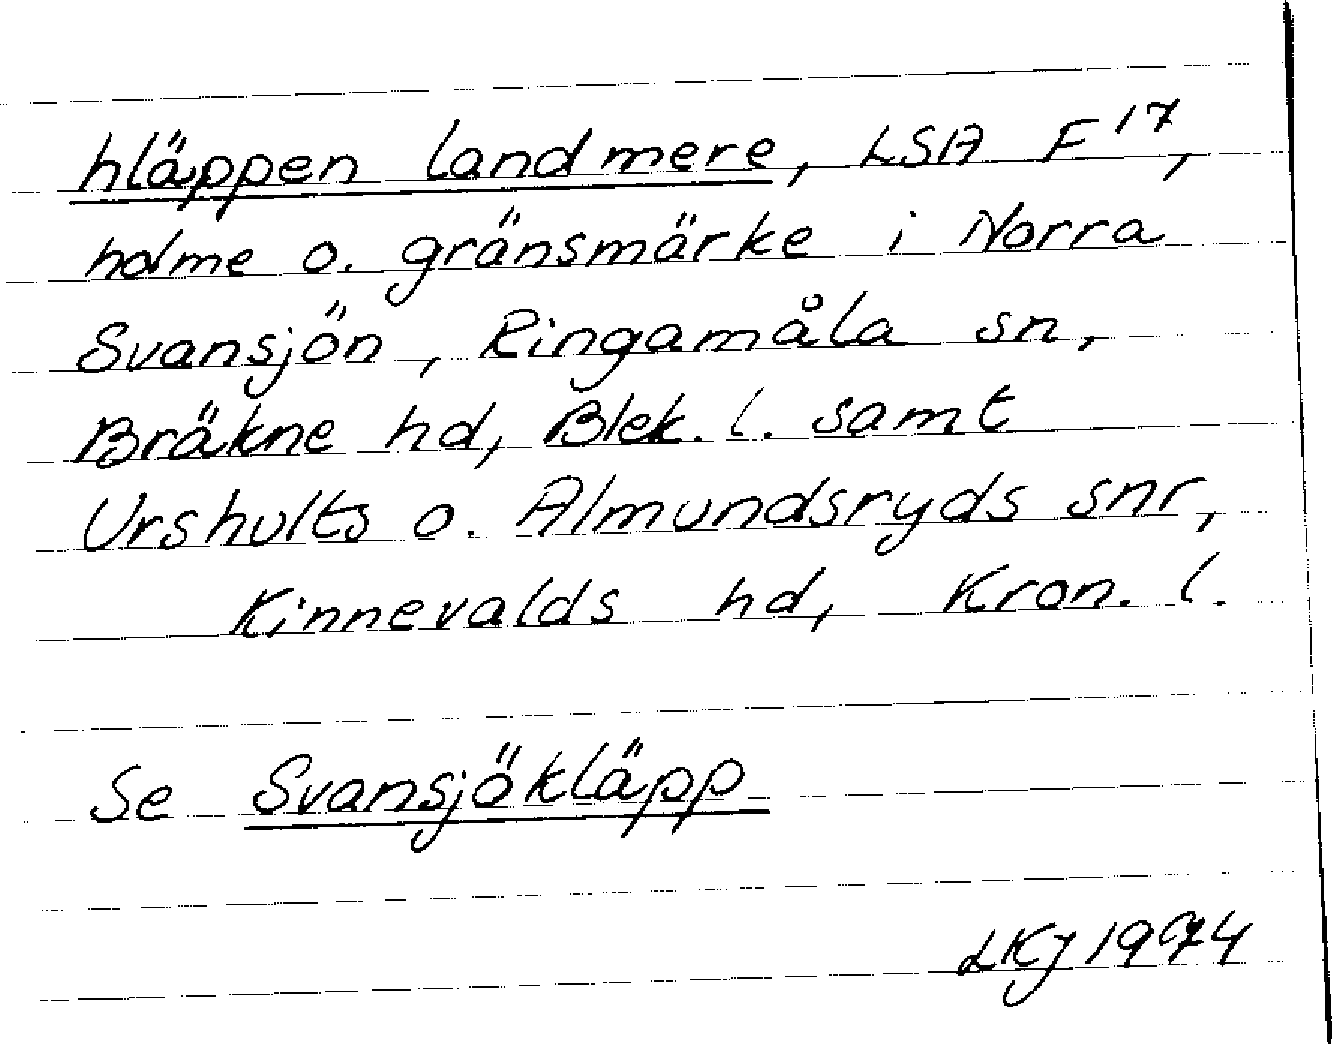 hläppen landmere, LSA F17,
holme o. gränsmärke i Norra
Svansjön, Ringamåla sn,
Bräkne hd, Blek. l. samt
Urshults o. Almundsryds snr,
Kinnevalds hd, Kron. l.
Se Svansjökläpp
LKJ 1974